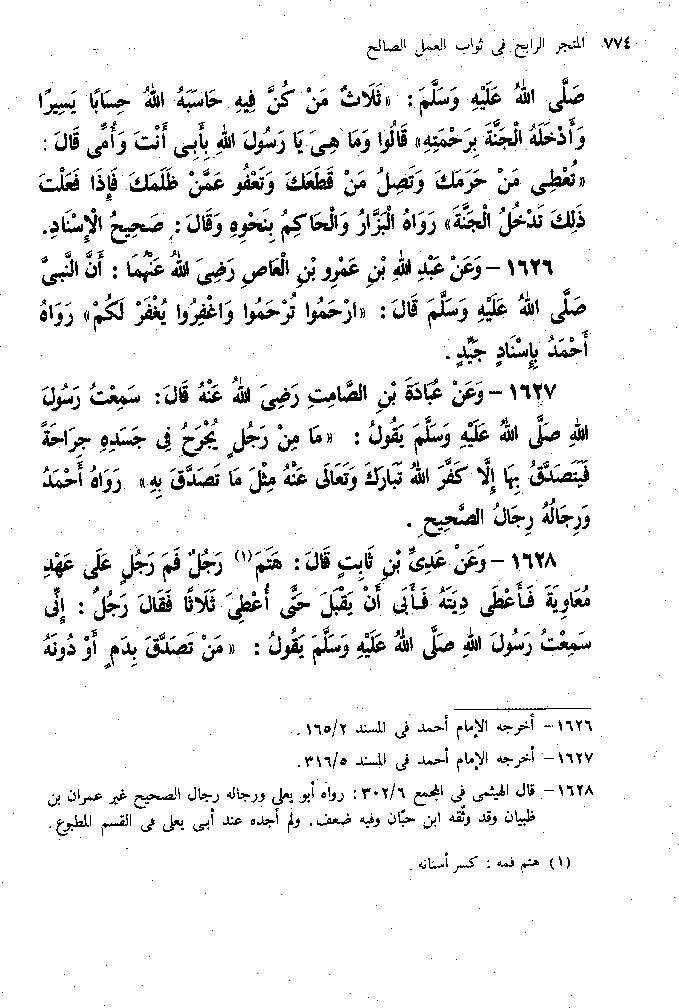 ٧٧٤ المتجر الرابح فى ثواب العمل الصالح
صَلَّى اللهُ عَلَيْهِ وَسَلَّمَ : «ثَلَاثٌ مَنْ كُنَّ فِيهِ حَاسَبَهُ اللهُ حِسَابًا يَسِيرًا
وَأَدْخَلَهُ الْجَنَّةَ بِرَحْمَتِهِ» قَالُوا وَمَا هِىَ يَا رَسُولَ اللهِ بِأَبِى أَنْتَ وَأُمِّى قَالَ :
«تُعْطِى مَنْ حَرَمَكَ وَتَصِلُ مَنْ قَطَعَكَ وَتَعْفُو عَمَّنْ ظَلَمَكَ فَإِذَا فَعَلْتَ
ذَلِكَ تَدْخُلُ الْجَنَّةَ» رَوَاهُ الْبَزَّارُ وَالْحَاكِمُ بِنَحْوِهِ وَقَالَ : صَحِيحُ الْإِسْنَادِ.
١٦٢٦ – وَعَنْ عَبْدِ اللهِ بْنِ عَمْرِو بْنِ الْعَاصِ رَضِىَ اللهُ عَنْهُمَا : أَنَّ النَّبِىَّ
صَلَّى اللهُ عَلَيْهِ وَسَلَّمَ قَالَ : «ارْحَمُوا تُرْحَمُوا وَاغْفِرُوا يُغْفَرْ لَكُمْ» رَوَاهُ
أَحْمَدُ بِإِسْنَادٍ جَيِّدٍ .
١٦٢٧ – وَعَنْ عُبَادَةَ بْنِ الصَّامِتِ رَضِىَ اللهُ عَنْهُ قَالَ : سَمِعْتُ رَسُولَ
اللهِ صَلَّى اللهُ عَلَيْهِ وَسَلَّمَ يَقُولُ : «مَا مِنْ رَجُلٍ يُجْرَحُ فِى جَسَدِهِ جِرَاحَةً
فَيَتَصَدَّقُ بِهَا إِلَّا كَفَّرَ اللهُ تَبَارَكَ وَتَعَالَى عَنْهُ مِثْلَ مَا تَصَدَّقَ بِهِ» رَوَاهُ أَحْمَدُ
وَرِجَالُهُ رِجَالُ الصَّحِيحِ .
١٦٢٨ – وَعَنْ عَدِىِّ بْنِ ثَابِتٍ قَالَ : هَتَمَ (١) رَجُلٌ فَمَ رَجُلٍ عَلَى عَهْدِ
مُعَاوِيَةَ فَأَعْطَى دِيَتَهُ فَأَبَى أَنْ يَقْبَلَ حَتَّى أُعْطِىَ ثَلَاثًا فَقَالَ رَجُلٌ : إِنِّى
سَمِعْتُ رَسُولَ اللهِ صَلَّى اللهُ عَلَيْهِ وَسَلَّمَ يَقُولُ : «مَنْ تَصَدَّقَ بِدَمٍ أَوْ دُونَهُ
١٦٢٦– أخرجه الإمام أحمد فى المسند ١٦٥/٢ .
١٦٢٧– أخرجه الإمام أحمد فى المسند ٣١٦/٥.
١٦٢٨– قال الهيثمى فى المجمع ٣٠٢/٦ : رواه أبو يعلى ورجاله رجال الصحيح غير عمران بن
ظبيان وقد وثّقه ابن حبّان وفيه ضعف. ولم أجده عند أبى يعلى فى القسم المطبوع.
(١) هتم فمه : كسر أسنانه .